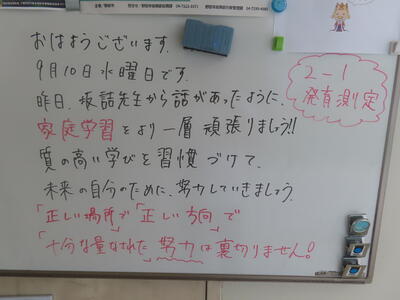 おはようございます。
9月10日水曜日です。
昨日、坂詰先生から話があったように、
家庭学習をより一層頑張りましょう!!
質の高い学びを習慣づけて、
未来の自分のために、努力していきましょう。
「正しい場所」で「正しい方向」で
「十分な量なされた」努力は裏切りません!
2-1
発育測定